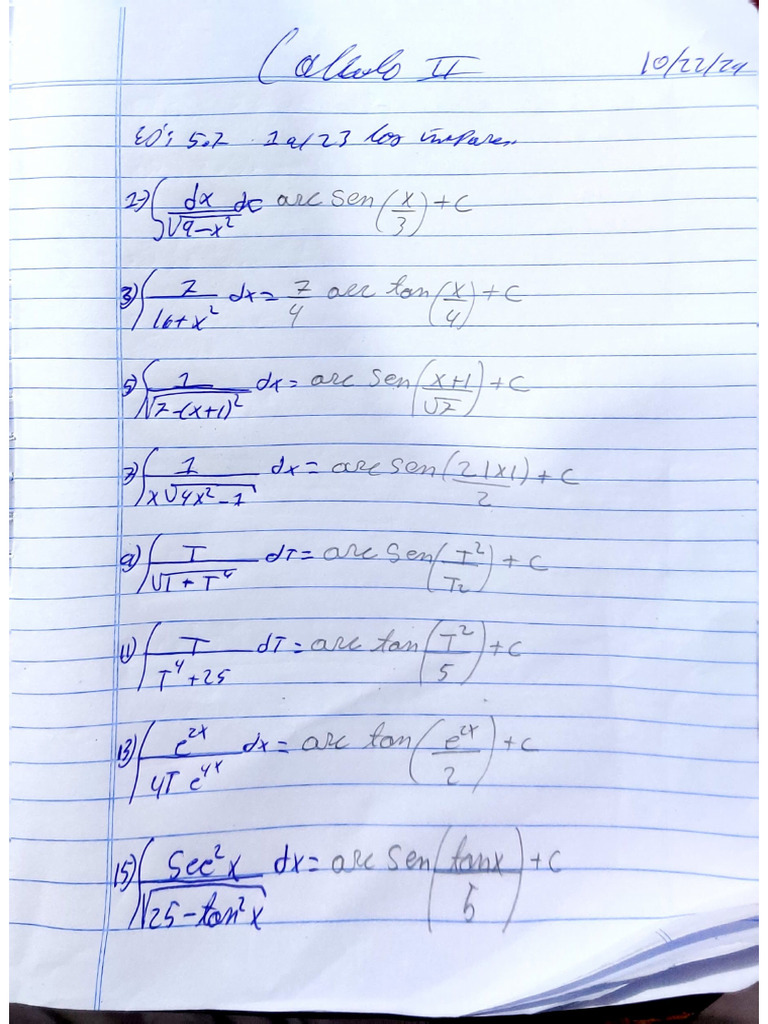 Calculo II
10/22/24
EJ: 5.7 1 al 23 los impares
1) ∫ dx/√(9-x²) dx arc sen(x/3)+C
3) ∫ 7/(16+x²) dx = 7/4 arc tan(x/4)+C
5) ∫ 1/√(7-(x+1)²) dx = arc sen((x+1)/√7)+C
7) ∫ 1/(x√(4x²-1)) dx = arc sen(2|x|)/2)+C
9) ∫ T/√(1+T⁴) dT = arc sen(T²/T2)+C
11) ∫ T/(T⁴+25) dT = arc tan(T²/5)+C
13) ∫ e^2x/(4T e^4x) dx = arc tan(e^2x/2)+C
15) ∫ Sec²x/√(25-tan²x) dx = arc sen(tanx/5)+C